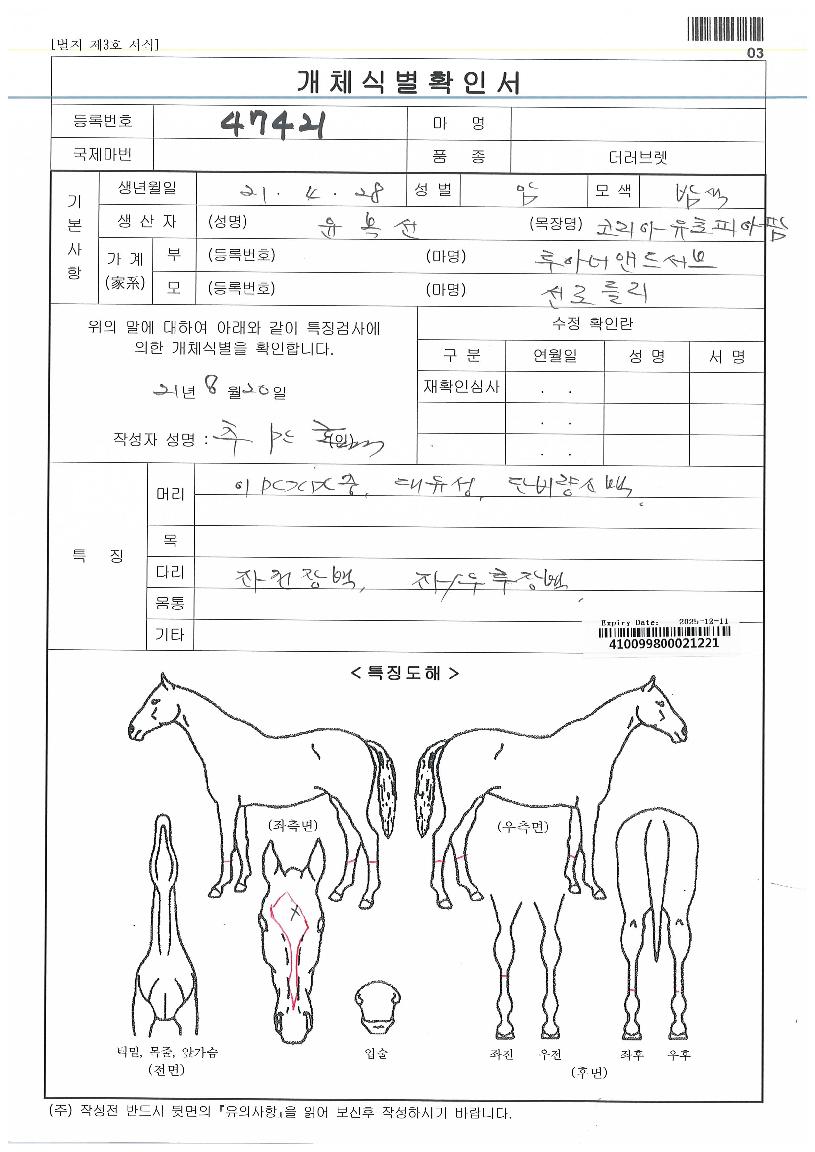 [별지 제3호 서식]
03
개체식별확인서
등록번호 47421 마 명
국제마번 품 종 더러브렛
기본사항
생년월일 21 . 4 . 28 성 별 암 모 색 밤색
생 산 자 (성명) 윤복선 (목장명) 코리아유토피아팜
가 계 (家系) 부 (등록번호) (마명)
모 (등록번호) (마명)
위의 말에 대하여 아래와 같이 특징검사에
의한 개체식별을 확인합니다.
21년 8월 20일
작성자 성명 : (인)
수정 확인란
구 분 연월일 성 명 서 명
재확인심사 . .
. .
. .
특 징
머리
목
다리 좌전장백, 좌/우후장백,
몸통
기타
Expiry Date: 2025-12-11
410099800021221
< 특징도해 >
(좌측면) (우측면)
턱밑, 목줄, 앞가슴
(전면)
입술
좌전 우전 좌후 우후
(후면)
(주) 작성전 반드시 뒷면의 『유의사항』을 읽어 보신후 작성하시기 바랍니다.